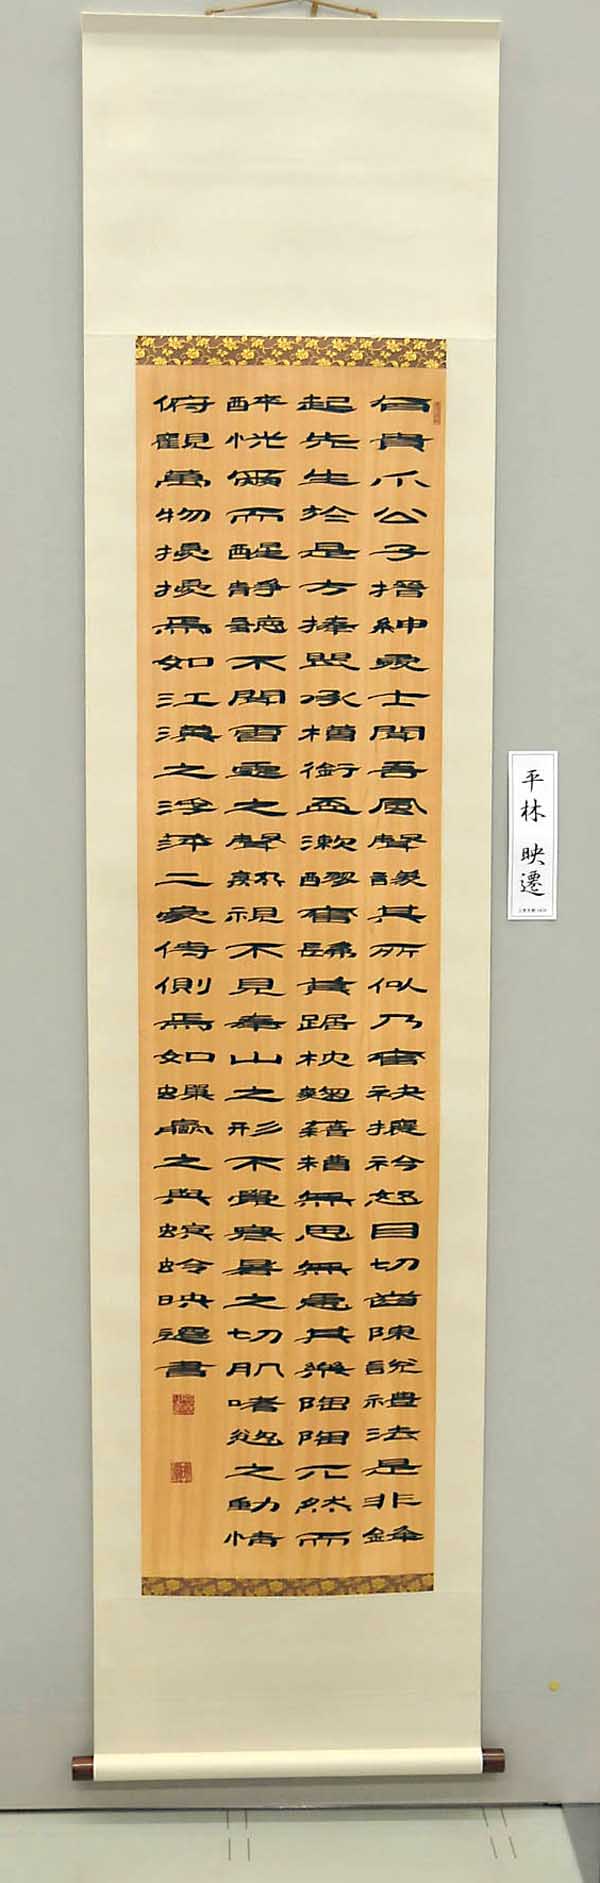 有貴介公子搢紳處士聞吾風聲議其所以乃奮袂攘衿怒目切齒陳說禮法是非鋒
起先生於是方捧甖承槽銜盃漱醪奮髯其踞枕麴藉糟無思無慮其樂陶陶兀然而
醉怳爾而醒靜聽不聞雷霆之聲熟視不見泰山之形不覺寒暑之切肌嗜慾之動情
俯觀萬物擾擾焉如江漢之浮萍二豪侍側焉如蜾蠃之與螟蛉映遷書
平林 映遷